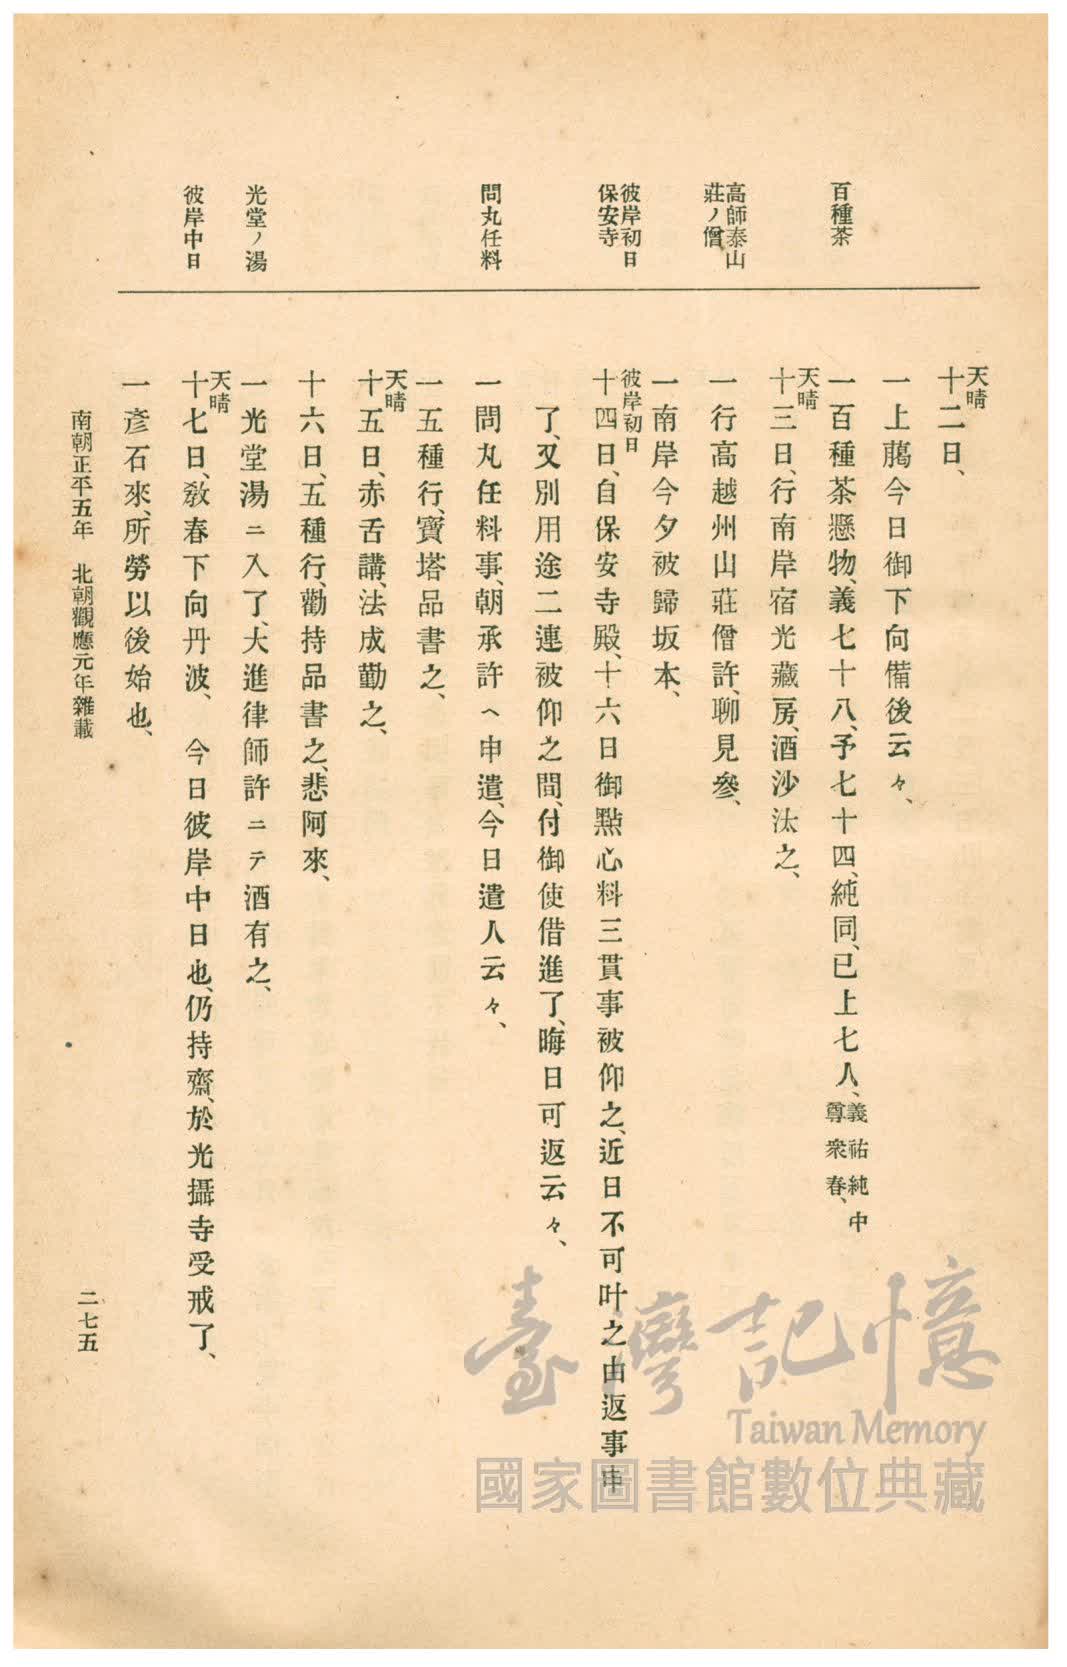 百種茶
高師泰山
莊ノ僧
彼岸初日
保安寺
問丸任料
光堂ノ湯
彼岸中日
天晴
十二日、
一上﨟今日御下向備後云々、
一百種茶懸物、義七十八、予七十四、純同、已上七人、義祐純中
尊衆春、
天晴
十三日、行南岸宿光藏房、酒沙汰之、
一行高越州山莊僧許、聊見參、
一南岸今夕被歸坂本、
彼岸初日
十四日、自保安寺殿、十六日御點心料三貫事被仰之、近日不可叶之由返事申
了、又別用途二連被仰之間、付御使借進了、晦日可返云々、
一問丸任料事、朝承許ヘ申遣、今日遣人云々、
一五種行、寶塔品書之、
天晴
十五日、赤舌講、法成勤之、
十六日、五種行、勸持品書之、悲阿來、
一光堂湯ニ入了、大進律師許ニテ酒有之、
天晴
十七日、教春下向丹波、　今日彼岸中日也、仍持齋、於光攝寺受戒了、
一彥石來、所勞以後始也、
南朝正平五年　北朝觀應元年雜載
二七五
臺灣記憶
Taiwan Memory
國家圖書館數位典藏